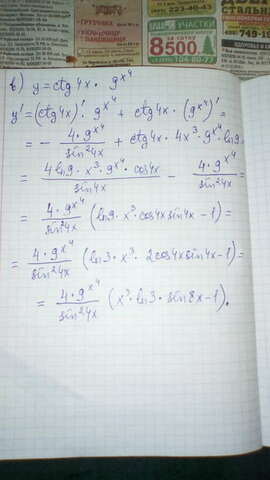 ГРУЗЧИКИ
223-42-43
ЗА УЧАСТКИ
8500
749-1
в) y=ctg4x · 9^x^4
y'=(ctg4x)' · 9^x^4 + ctg4x · (9^x^4)' =
= - 4·9^x^4/sin²4x + ctg4x · 4x³·9^x^4·ln9
= 4ln9·x³·9^x^4·cos4x/sin4x - 4·9^x^4/sin²4x =
= 4·9^x^4/sin²4x (ln9·x³·cos4x sin4x -1)=
= 4·9^x^4/sin²4x (ln3·x³·2cos4x sin4x-1)=
= 4·9^x^4/sin²4x (x³·ln3·sin8x-1).